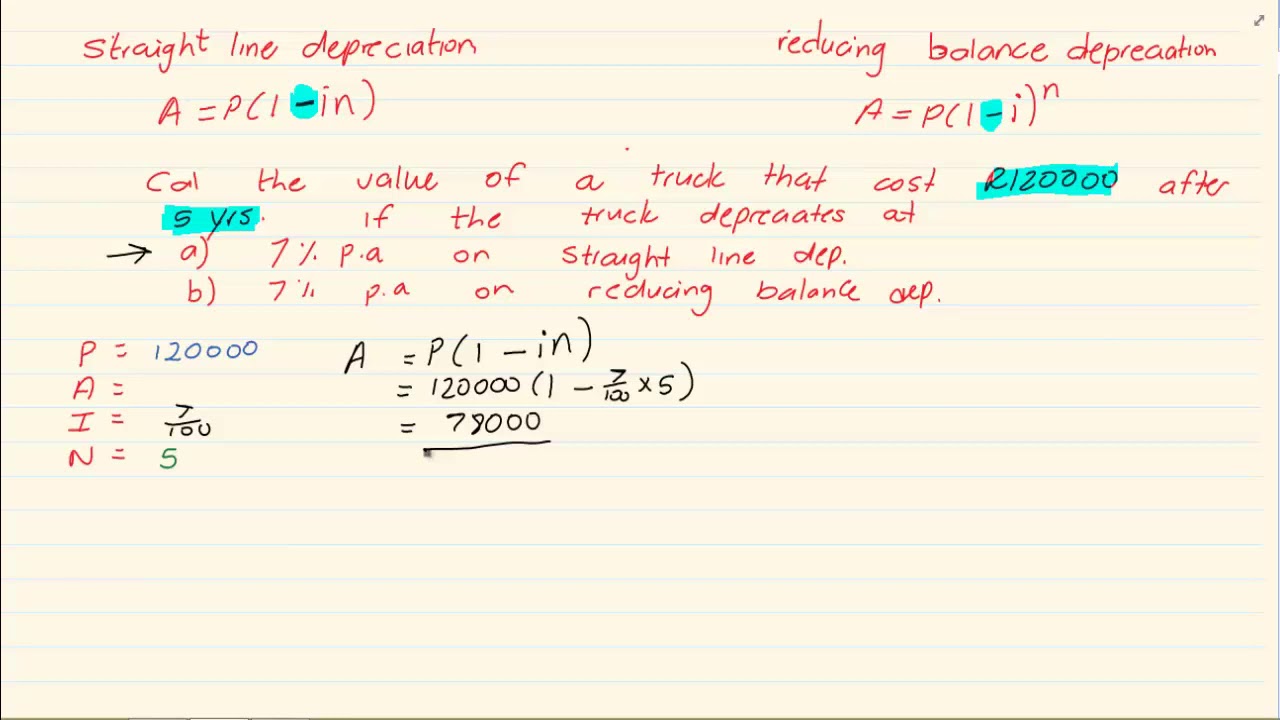 Straight line depreciation
reducing balance depreciation
A = P(1 - in)
A = P(1 - i)^n
Cal the value of a truck that cost R120000 after
5 yrs. If the truck depreciates at
→ a) 7% p.a on straight line dep.
b) 7% p.a on reducing balance dep.
P = 120000
A =
I = 7/100
N = 5
A = P(1 - in)
= 120000(1 - 7/100 × 5)
= 78000